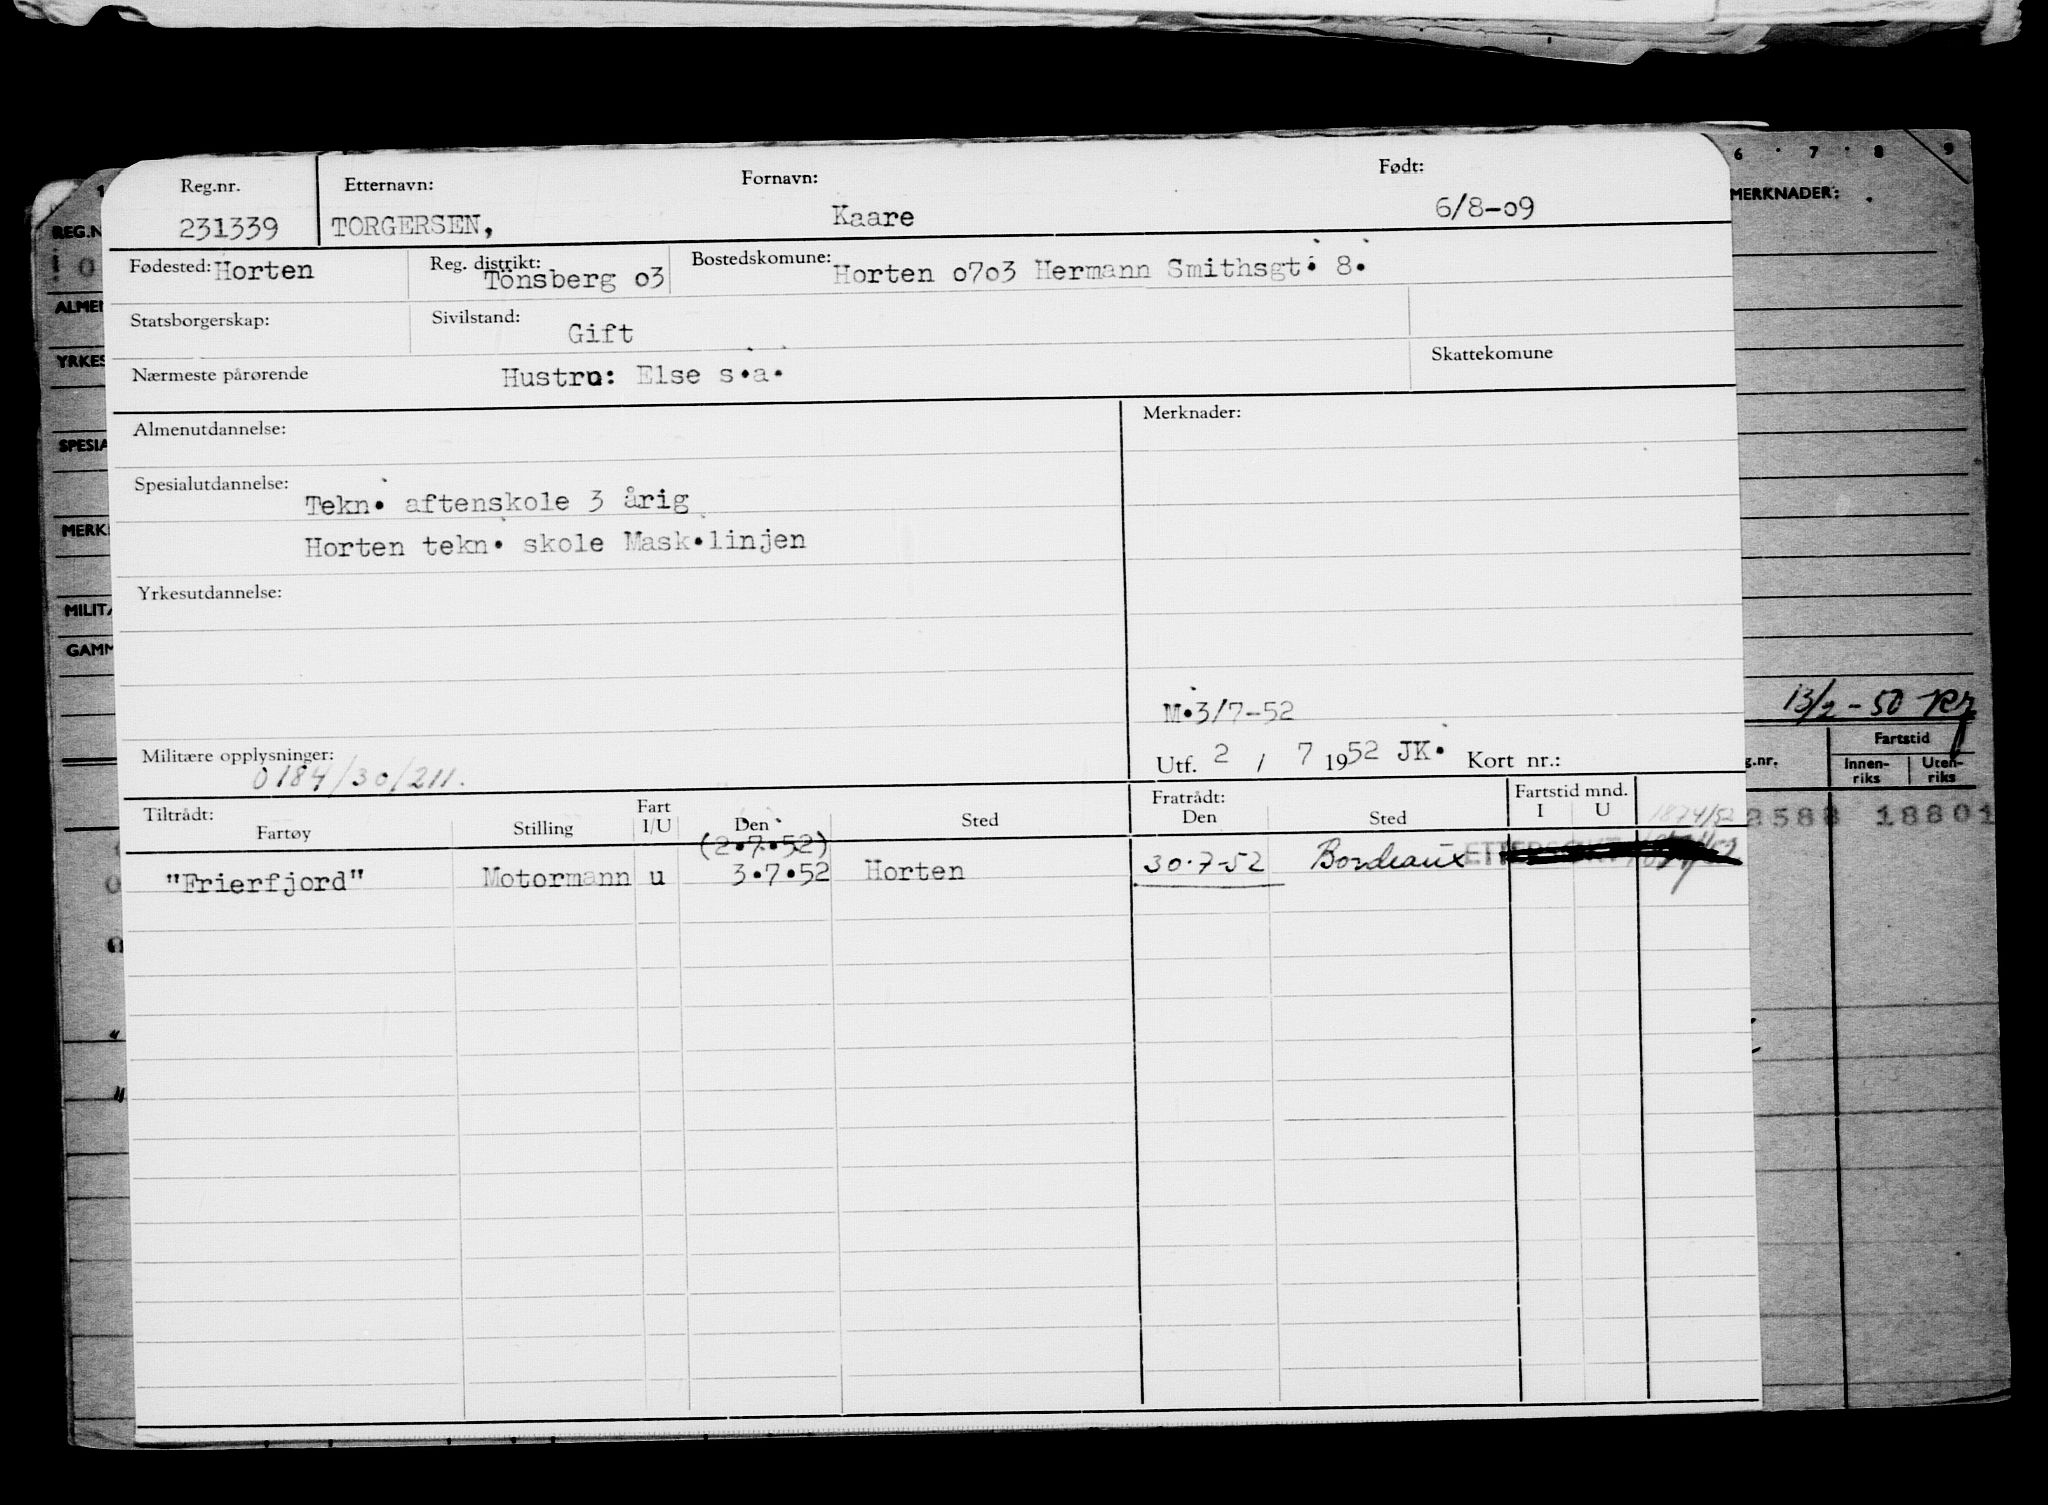 Reg.nr. Etternavn: Fornavn: Født:
231339 TORGERSEN, Kaare 6/8-09
Fødested: Horten Reg. distrikt: Tönsberg 03 Bostedskomune: Horten 0703 Hermann Smithsgt. 8.
Statsborgerskap: Sivilstand: Gift
Nærmeste pårørende Hustru: Else s.a. Skattekomune
Almenutdannelse: Merknader:
Spesialutdannelse: Tekn. aftenskole 3 årig
Horten tekn. skole Mask.linjen
Yrkesutdannelse:
M.3/7-52
Militære opplysninger: 0184/30/211. Utf. 2 / 7 1952 JK. Kort nr.:
Tiltrådt: Fratrådt: Fartstid mnd.
Fartøy Stilling Fart I/U Den Sted Den Sted I U
(2.7.52) 1874/52
"Frierfjord" Motormann u 3.7.52 Horten 30.7-52 Bordeaux
6 7 8 9
MERKNADER:
13/2-50
Fartstid
g.nr. Innen-riks Uten-riks
8588 18801
1
REG.N
0
ALMEN
YRKES
SPESIA
MERK
MILITA
GAMM